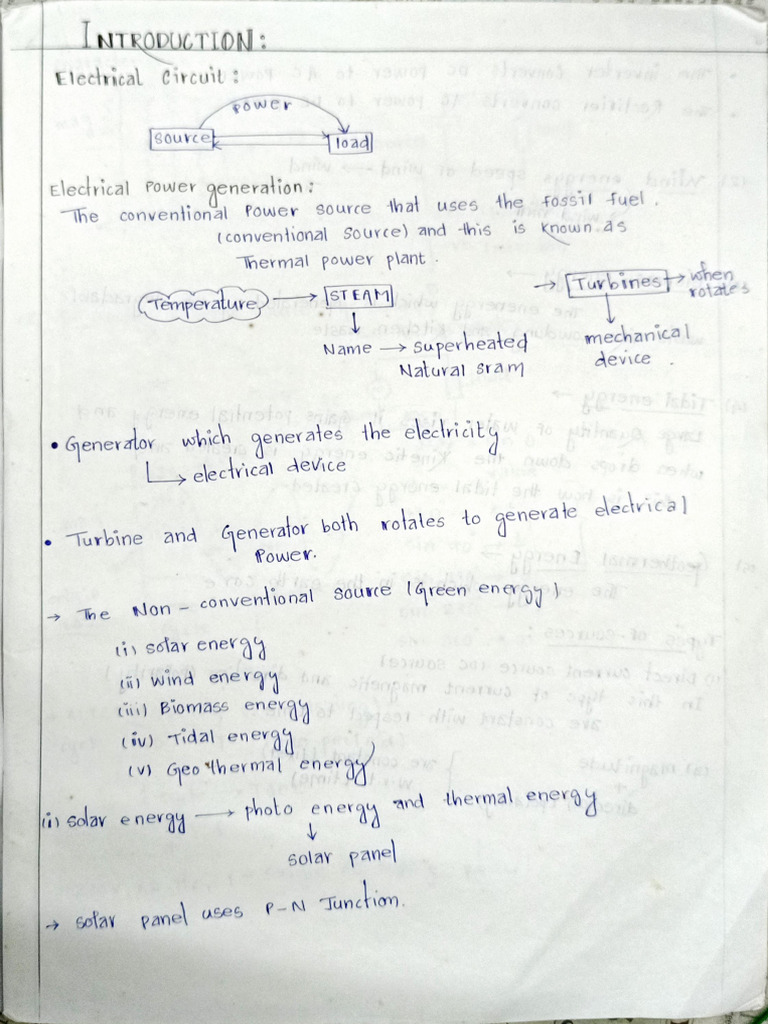 INTRODUCTION:
Electrical Circuit:
power
source
load
Electrical Power generation:
The conventional Power source that uses the fossil fuel.
(conventional source) and this is known as
Thermal power plant.
Temperature → STEAM
→ Turbines → when rotates
Name → superheated
Natural sram
mechanical
device.
• Generator which generates the electricity
→ electrical device
• Turbine and Generator both rotates to generate electrical
Power.
→ The Non-conventional source (Green energy)
(i) solar energy
(ii) wind energy
(iii) Biomass energy
(iv) Tidal energy
(v) Geothermal energy
(i) solar energy → photo energy and thermal energy
↓
solar panel
→ solar panel uses P-N Junction.